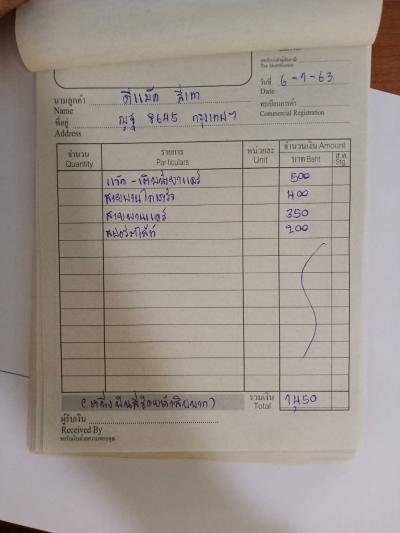 เลขประจำตัวผู้เสียภาษี
Tax Identification
วันที่ 6-1-63
Date
นามลูกค้า ดีแม็ค สีเทา
Name
ทะเบียนการค้า
Commercial Registration
ที่อยู่ ญฐ 8645 กรุงเทพฯ
Address
จำนวน รายการ หน่วยละ จำนวนเงิน Amount
Quantity Particulars Unit บาท Baht ส.ต. Stg.
แวค - เติมน้ำยาแอร์ 500
สายพานไดชาร์จ 400
สายพานแอร์ 350
สปอร์ตไลท์ 200
(หนึ่งพันสี่ร้อยห้าสิบบาท) รวมเงิน 1,450
Total
ผู้รับเงิน
Received By
ขอรับเงินด้วยความขอบคุณ